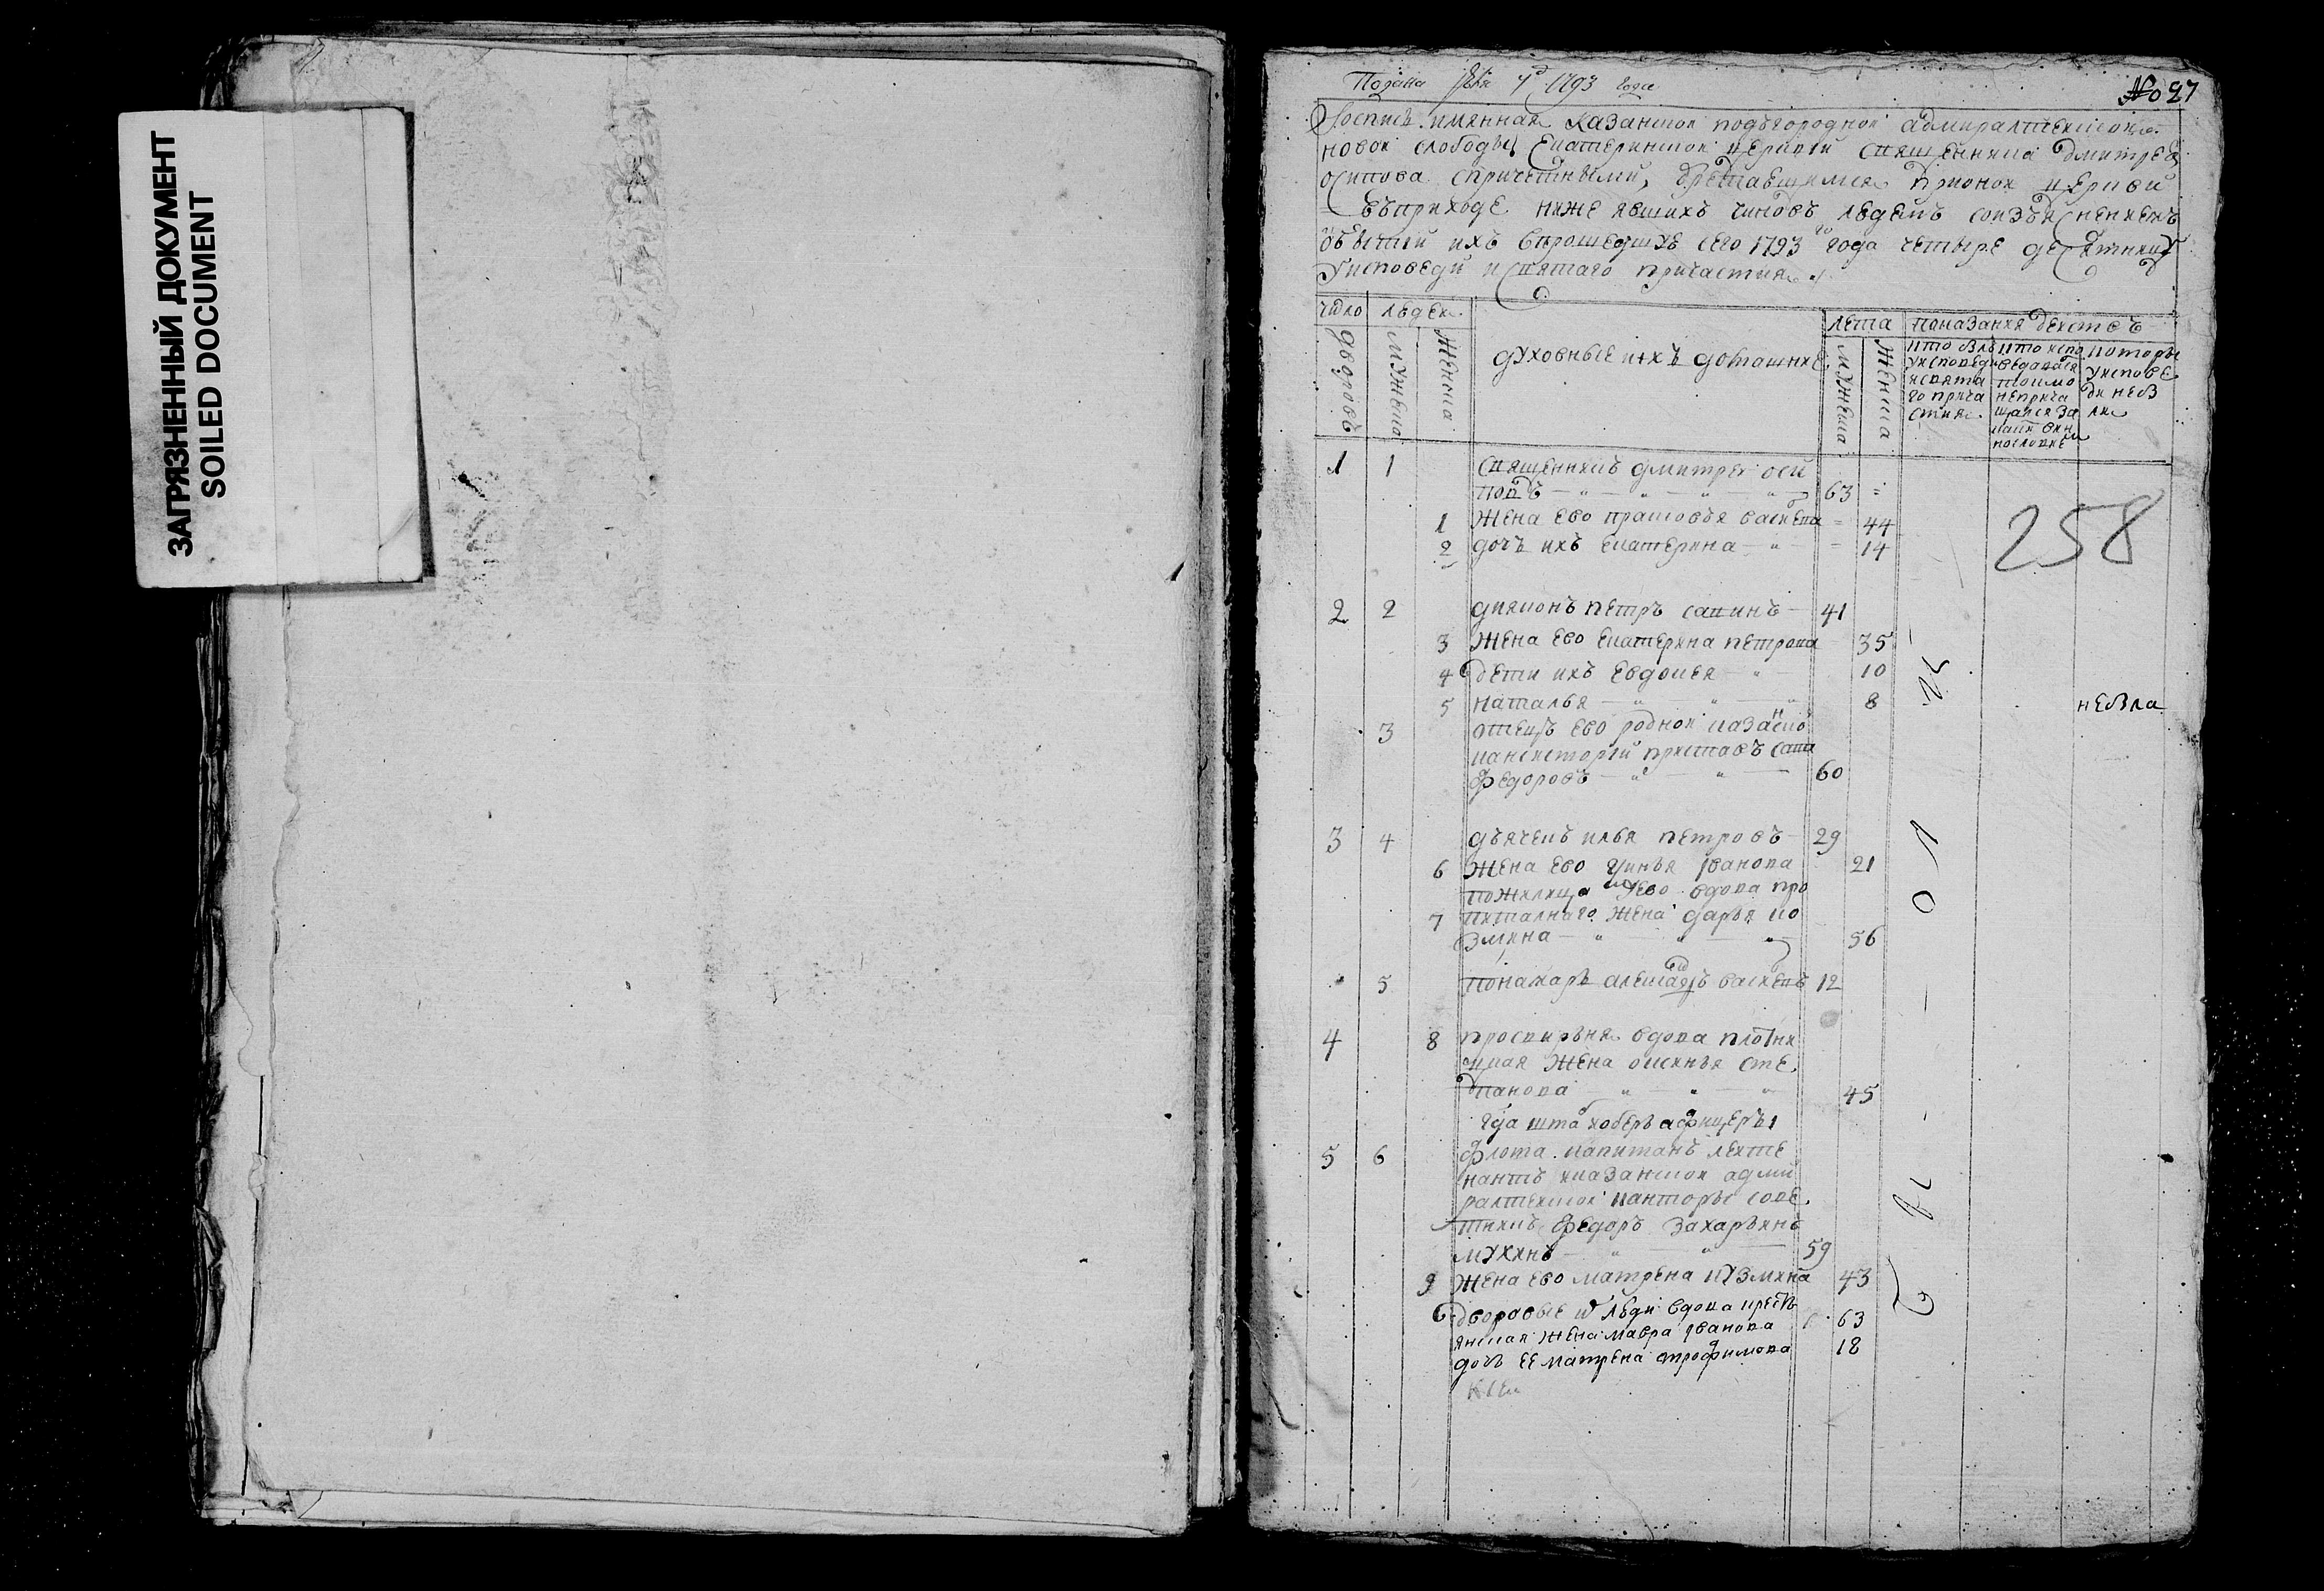 ЗАГРЯЗНЕННЫЙ ДОКУМЕНТ
SOILED DOCUMENT
Подана 1793 года
№ 27
Роспись имянная казанской подгородной адмиралтейской
новой слободы Екатеринской церкви священника дмитрея
осипова спричетными, обретающимся прионой церкви
въприходе ниже явшихъ чиновъ людемъ соизъяснениемъ
обытии ихъ впрошедшую сего 1793 го года четыредесятницу
уисповеди исвятаго причастия
число людей
дворовъ мужеска женска
духовные иихъ домашние
лета
мужеска женска
показания действъ
кто былъ
уисповеди
исвята
го прича
стия
кто испо
ведался
токмо
неприча
щался за
каки вин
пословие
которы
уиспове
ди небы
ли
1 1 священникъ дмитрей оси
повъ 63
1 жена ево прасковья васильева 44
2 дочь ихъ екатерина 14
258
2 2 диаконъ петръ савинъ 41
3 жена ево екатерина петрова 35
4 дети ихъ евдокея 10
5 наталья 8 небыла
3 отецъ ево родной казанской
канситории приставъ сава
федоровъ 60
3 4 дьячекъ илья петровъ 29
6 жена ево иванова 21
пожилица унево вдова про
7 питалнаго жена дарья ко
змина 56
5 пономарь александръ васильевъ 12
4 8 просвирьня вдова плотни
цкая жена оксинья сте
панова 45
года штапъ иоберъ афицеры
5 6 флота капитанъ лейте
нантъ иказанской адми
ралтейской канторы сове
тникъ федоръ захарьинъ
мухинъ 59
9 жена ево матрена кузмина 43
дворовые ихъ люди вдова кресть
янская жена мавра иванова 63
дочь ее матрена трофимова 18